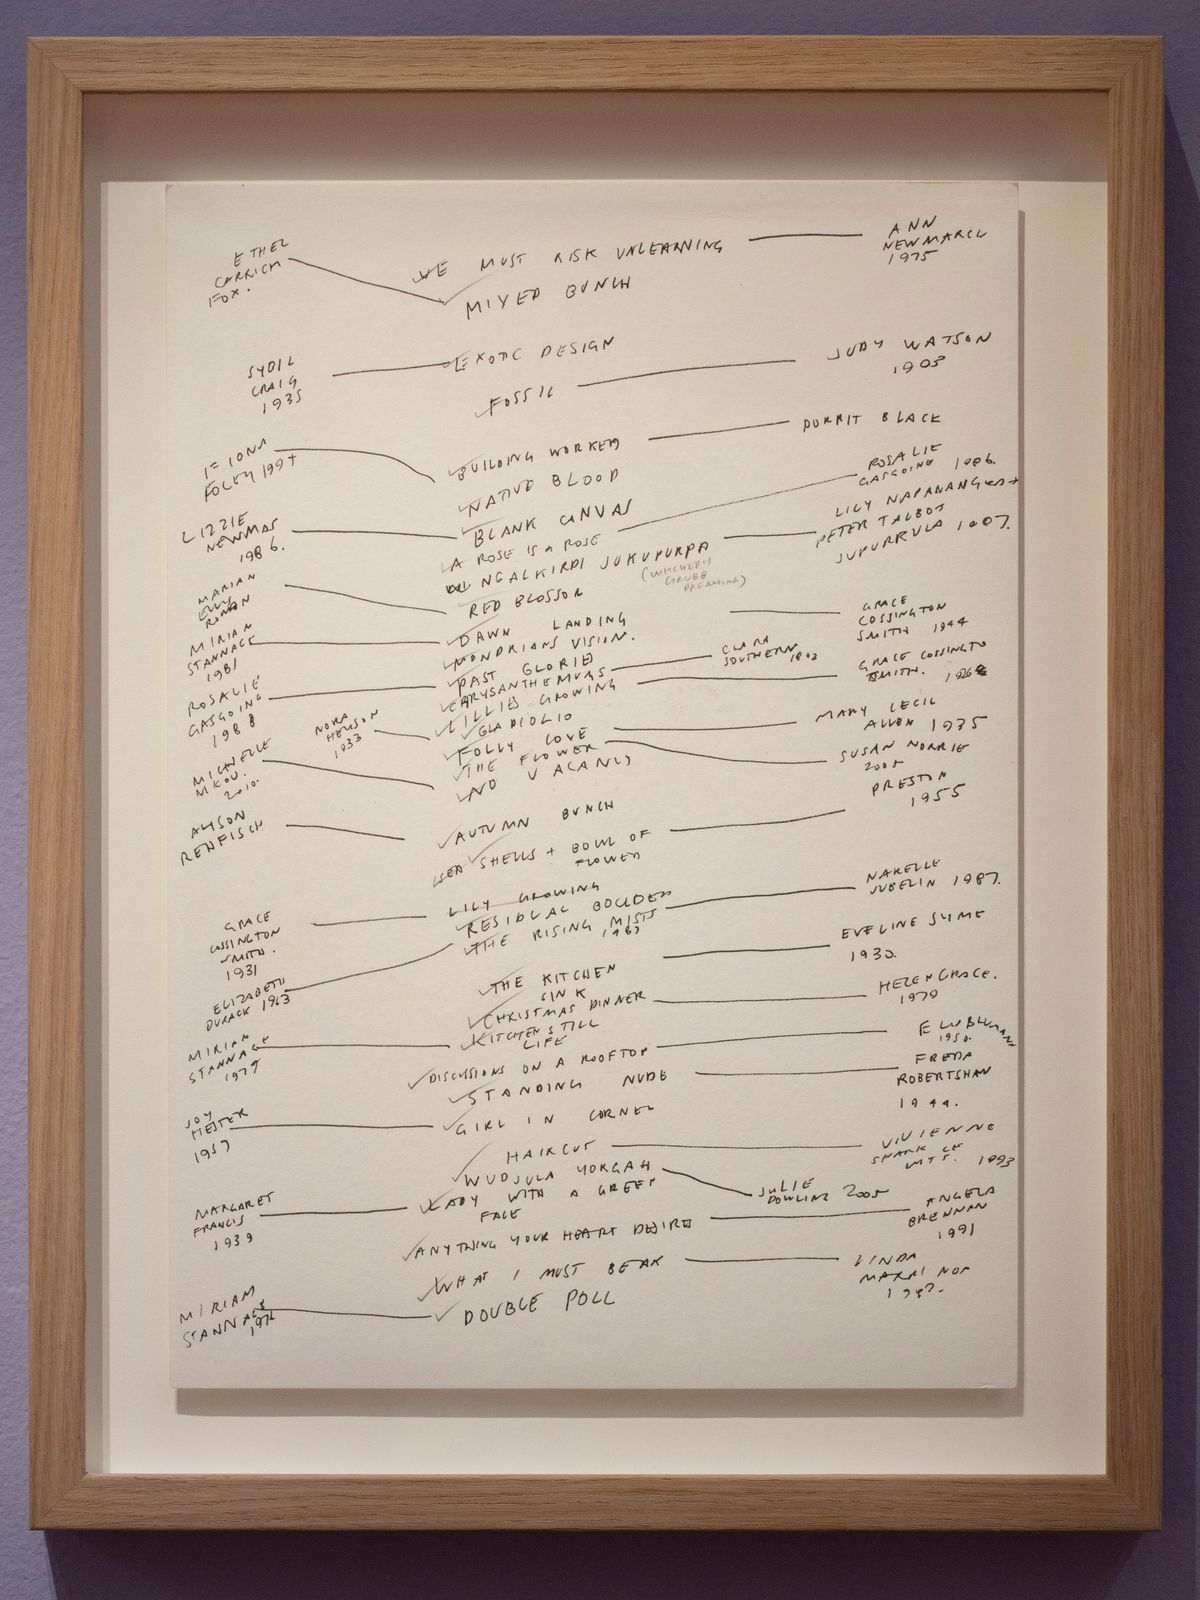 ETHEL
CARRICK
FOX.
WE MUST RISK UNLEARNING
ANN
NEWMARCH
1975
MIXED BUNCH
SYBIL
CRAIG
1935
EXOTIC DESIGN
FOSSIL
JUDY WATSON
FIONA
FOLEY 1994
BUILDING WORKERS
DORRIT BLACK
NATIVE BLOOD
LIZZIE
NEWMAN
1986.
BLANK CANVAS
A ROSE IS A ROSE
ROSALIE
GASGOINE
NGALKIRDI JUKUPURPA
(WITCHEDY
GRUBB
DREAMING)
LILY NAPANANGKA +
PETER TALBOT
JUPURRULA
MARIAN
ELLIS
ROWAN
RED BLOSSOM
MIRIAN
STANNAGE
1981
DAWN LANDING
MONDRIANS VISION.
GRACE
COSSINGTON
SMITH 1944
ROSALIE
GASGOING
1988
PAST GLORIES
CHRYSANTHEMUMS
CLARA
SOUTHERN
LILLIES GROWING
GRACE COSSINGTO
SMITH.
NORA
HEYSON
1933
GLADIOLIO
FOLLY LOVE
MARY CECIL
ALLEN 1935
MICHELLE
2010.
THE FLOWER
NO VACANCY
SUSAN NORRIE
2005
ALYSON
RENFISCH
AUTUMN BUNCH
SEA SHELLS + BOWL OF
FLOWERS
PRESTON
1955
GRACE
COSSINGTON
SMITH.
1931
LILY GROWING
RESIDUAL BOULDERS
THE RISING MISTS
NARELLE
JUBELIN 1987.
ELIZABETH
DURACK 1963
THE KITCHEN
SINK
EVELINE SYME
1930.
CHRISTMAS DINNER
HELEN GRACE.
1979
MIRIAM
STANNAGE
1979
KITCHEN STILL
LIFE
DISCUSSIONS ON A ROOFTOP
1950.
STANDING NUDE
FREDA
ROBERTSHAW
1944.
JOY
HESTER
1957
GIRL IN CORNER
HAIRCUT
VIVIENNE
SHARK LE
WITT. 1993
WUDJULA YORGAH
JULIE
DOWLING 2005
MARGARET
FRANCIS
1939
LADY WITH A GREEN
FACE
ANYTHING YOUR HEART DESIRES
ANGELA
BRENNAN
1991
WHAT I MUST BEAR
LINDA
MARRINON
MIRIAM
STANNAGE
DOUBLE POLL